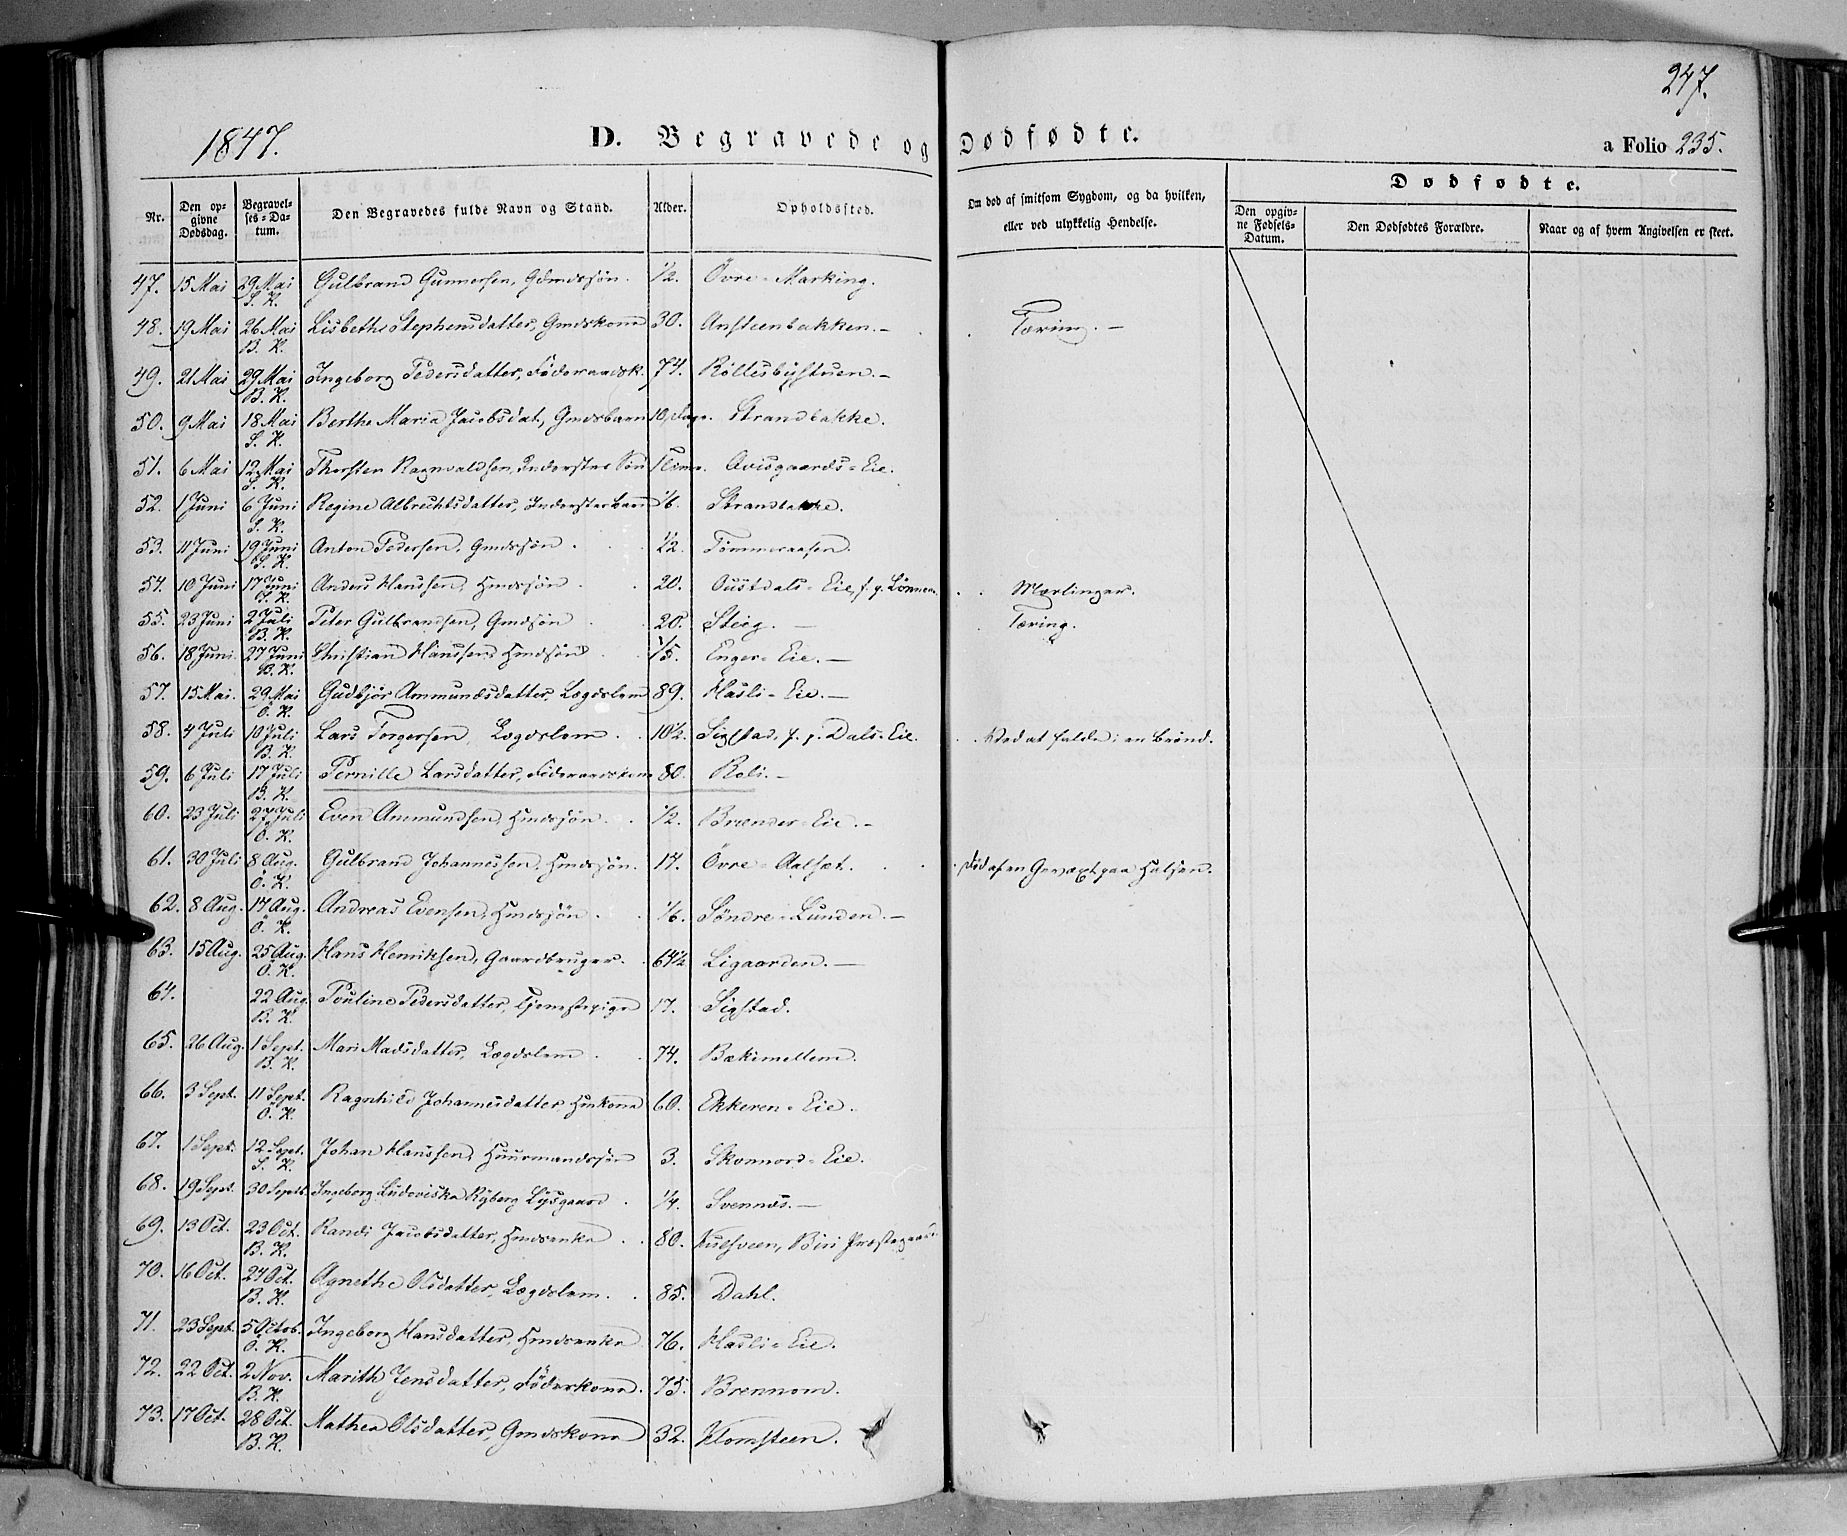 247.
1847.
D. Begravede og Dødfødte.
a Folio 235.
Nr.
Den opgivne Dødsdag.
Begravelses-Datum.
Den Begravedes fulde Navn og Stand.
Alder.
Opholdssted.
Om død af smitsom Sygdom, og da hvilken, eller ved ulykkelig Hendelse.
Dødfødte.
Den opgivne Fødsels-Datum.
Den Dødfødtes Forældre.
Naar og af hvem Angivelsen er skeet.
47. 15 Mai 29 Mai S. K. Gulbrand Gunnersen, Gdmdssøn. 1/2. Övre-Marking.
48. 19 Mai 26 Mai B. K. Lisbeth Stephensdatter, Gmdskone 30. Ansteenbakken.- Tæring.-
49. 21 Mai 29 Mai B. K. Ingeborg Pedersdatter, Föderaadsk. 74. Röllesbystuen.-
50. 9 Mai 18 Mai S. K. Berthe Maria Jacobsdat, Gmdsbarn 10 Dage. Strandbakke.
51. 6 Mai 12 Mai S. K. Thorsten Ragnvaldsen, Inderstes Søn 7 Time. Avisgaards-Eie.
52. 1 Juni 6 Juni S. K. Regine Albrechtsdatter, Inderstebarn 1/6. Strandbakke.
53. 11 Juni 19 Juni S. K. Anton Pedersen, Gmdssøn. 1/2. Tømmeraasen.
54. 10 Juni 17 Juni S. K. Anders Hanssen, Hmdssøn. 20. Oustdals-Eie, f. g. Lønnem. Mæslinger.
55. 23 Juni 2 Juli B. K. Peter Gulbrandsen, Gmdssøn 20. Steeg.- Tæring.
56. 18 Juni. 27 Juni B. K. Christian Hanssen, Hmdssøn. 1/5. Enger-Eie.-
57. 15 Mai. 29 Mai Ö. K. Gudbjør Ammundsdatter, Lægdslem 89. Hasli-Eie.-
58. 4 Juli 10 Juli B. K. Lars Torgersen, Lægdslem. 10 1/2. Sigstad, f. p. Dals-Eie. Ved at falde i en Brønd.
59. 6 Juli 17 Juli B. K. Pernille Larsdatter, Föderaadskone 80. Roli.-
60. 23 Juli 27 Juli Ö. K. Even Ammundsen, Hmdssøn. 1/2. Brænder-Eie.-
61. 30 Juli 8 Aug. Ö. K. Gulbrand Johannessen, Hmdssøn. 17. Övre-Aalset. Død af en Gevæxt paa Halsen.
62. 8 Aug. 17 Aug. Ö. K. Andreas Evensen, Hmdssøn. 1/6. Søndre-Lunden.-
63. 15 Aug. 25 Aug. Ö. K. Hans Henriksen, Gaardbruger. 64 1/2 Ligaarden.-
64. 22 Aug. B. K. Pauline Pedersdatter, Tjenestepige 17. Sigstad.
65. 26 Aug. 1 Sept. B. K. Mari Madsdatter, Lægdslem. 74. Bækimellem.
66. 3 Sept. 11 Sept. Ö. K. Ragnhild Johannesdatter Huskone 60. Ekkeren-Eie.
67. 1 Sept. 12 Sept. S. K. Johan Hanssen, Huusmandssøn 3. Skonnord-Eie.
68. 19 Sept. 30 Septb. Ingeborg Ludoviska Ryberg Lysgaard. 1/4. Svennæs.-
69. 13 Oct. 23 Oct. B. K. Randi Jacobsdatter, Hmdsenke. 80. Kulsveen, Biri Præstegaard
70. 16 Oct. 27 Oct. B. K. Agnethe Olsdatter, Lægdslem. 85. Dahl.
71. 23 Sept. 5 Octob. Ö. K. Ingeborg Hansdatter, Hmdsenke 76. Hasli-Eie.
72. 22 Oct. 2 Nov. B. K. Marith Jensdatter, Föderkone. 75. Brennom.
73. 17 Oct. 28 Oct. B. K. Mathea Olsdatter, Gmdskone 32. Klomsteen.